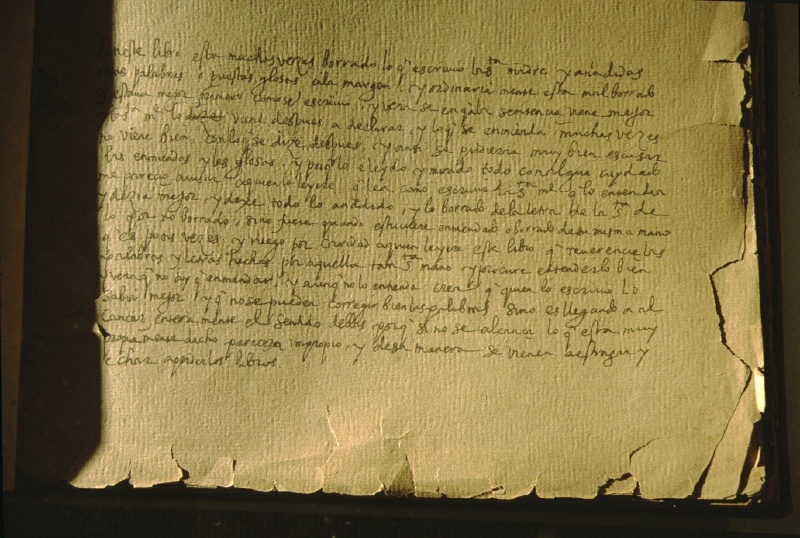 En este libro esta muchas vezes borrado lo q̃ escrivio la s.ta madre y añadidas
otras palabras o puestas glosas ala margen y ordinariamente esta mal borrado
y estava mejor primero como se escrivio, y verase en q̃ ala sentencia viene mejor
y la s.ta m.e lo viene despues a declarar, y lo q̃ se enmienda muchas vezes
no viene bien con lo q̃ se dize despues, y ansi se pudieran muy bien escusar
las enmiendas y las glosas, y porq̃ lo e leydo y mirado todo con algun cuydado
me parecio avisar a quien lo leyere q̃ lea como escrivio la s.ta m.e q̃ lo entendia
y dezia mejor, y dexe todo lo añadido, y lo borrado dela letra de la s.ta de
lo por no borrado, sino fuere quando estuviere enmendado o borrado de su misma mano
q̃ es pocas vezes, y ruego por caridad a quien leyere este libro q̃ reverencie las
palabras y letras hechas por aquella tan s.ta mano y procure entenderlo bien
y vera q̃ no ay q̃ enmendar, y aunq̃ no lo entienda crea q̃ quien lo escrivio lo
sabia mejor, y q̃ no se pueden corregir bien las palabras sino es llegando a al
cançar enteramente el sentido dellas, porq̃ si no se alcança lo q̃ esta muy
propiamente dicho parecera impropio, y desa manera se vienen a estragar y
echar a perder los libros.